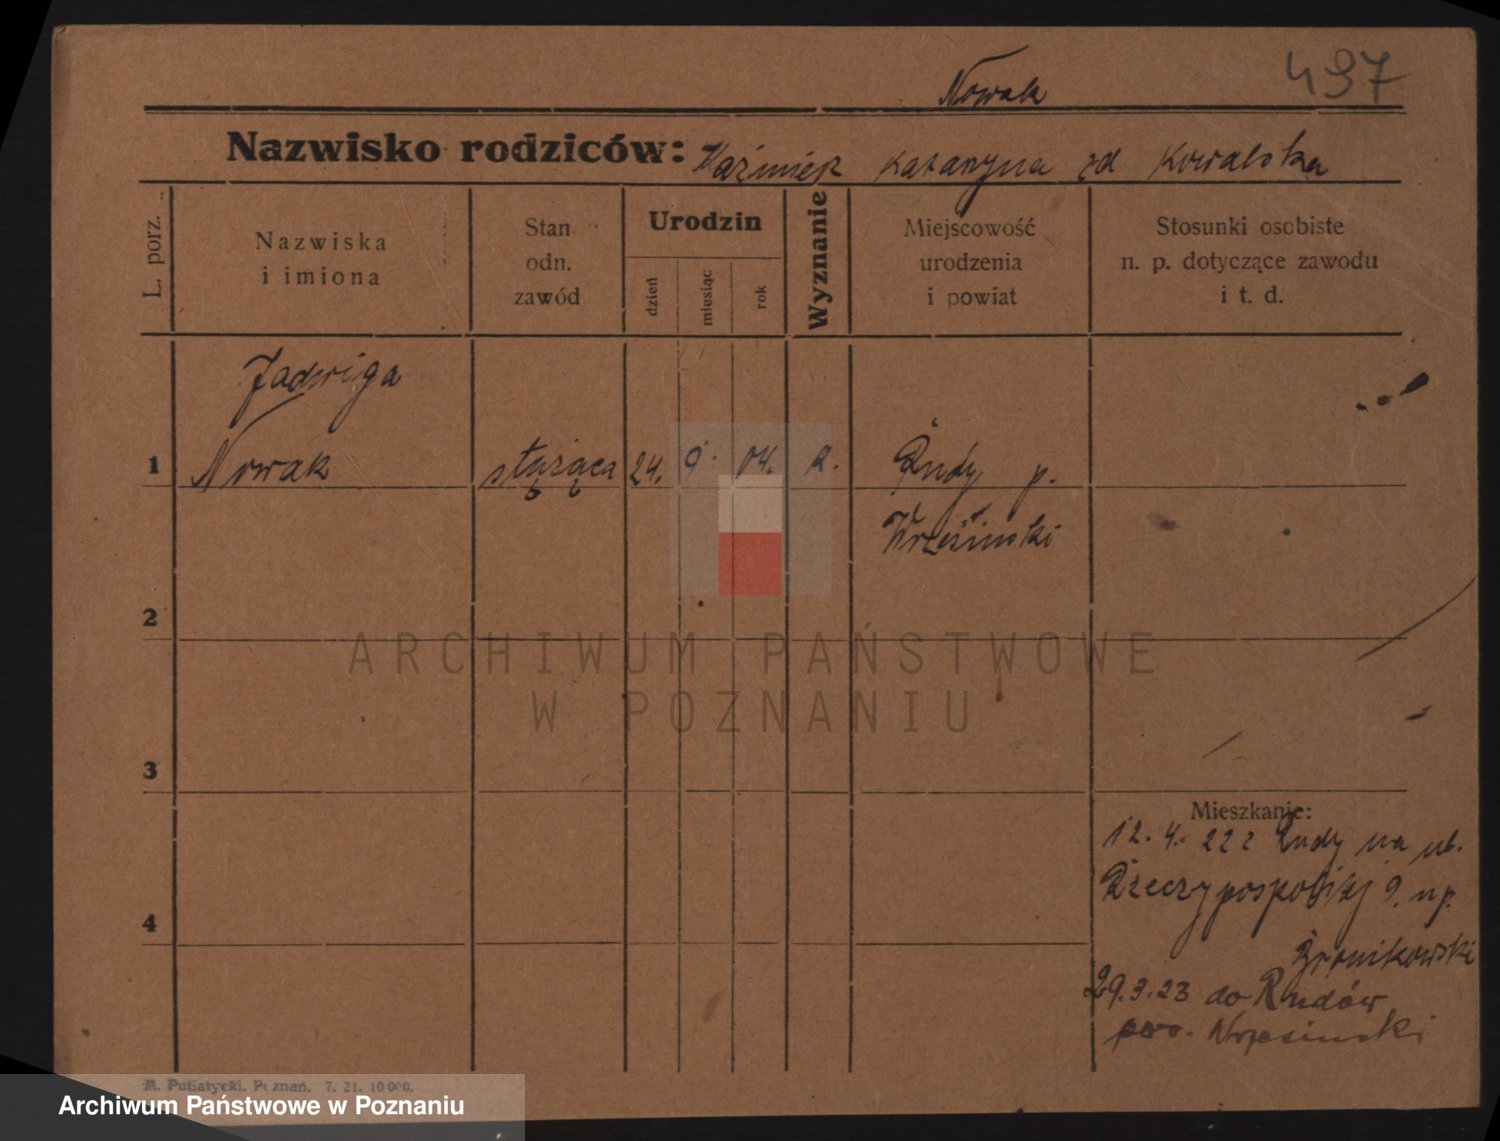 497
Nowak
Nazwisko rodziców: Kaźmierz Katarzyna zd Kowalska
L. porz.
Nazwiska
i imiona
Stan
odn.
zawód
Urodzin
dzień
miesiąc
rok
Wyznanie
Miejscowość
urodzenia
i powiat
Stosunki osobiste
n. p. dotyczące zawodu
i t. d.
Jadwiga
1 Nowak służąca 24. 9. 04. R. Rudy p.
Wrzesinski
2
3
4
Mieszkanie:
12. 4. 22 z Rudy na ul.
Rzeczypospolitej 9. u p.
Bronikowski
29.3.23 do Rudów
pow. Wrzesinski
R. Putiatycki. Poznań. 7. 21. 10 000.
ARCHIWUM PAŃSTWOWE
W POZNANIU
Archiwum Państwowe w Poznaniu